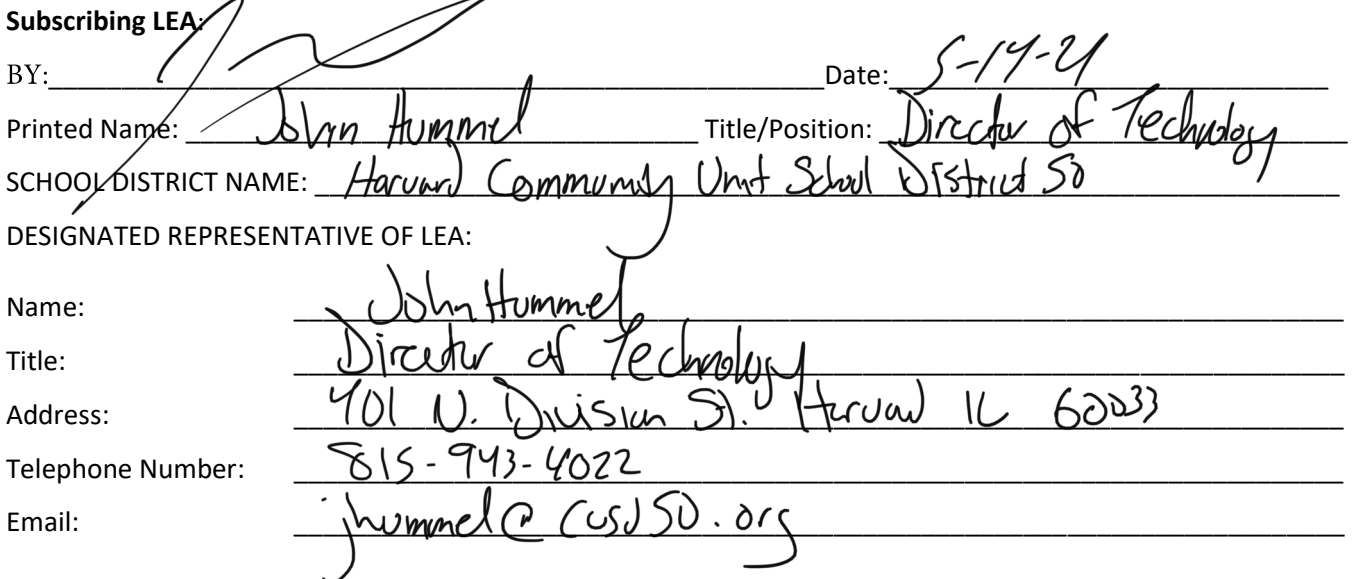 Subscribing LEA:
BY: Date: 5-14-21
Printed Name: John Hummel Title/Position: Director of Technology
SCHOOL DISTRICT NAME: Harvard Community Unit School District 50
DESIGNATED REPRESENTATIVE OF LEA:
Name: John Hummel
Title: Director of Technology
Address: 401 N. Division St. Harvard IL 60033
Telephone Number: 815-943-4022
Email: jhummel@cusd50.org